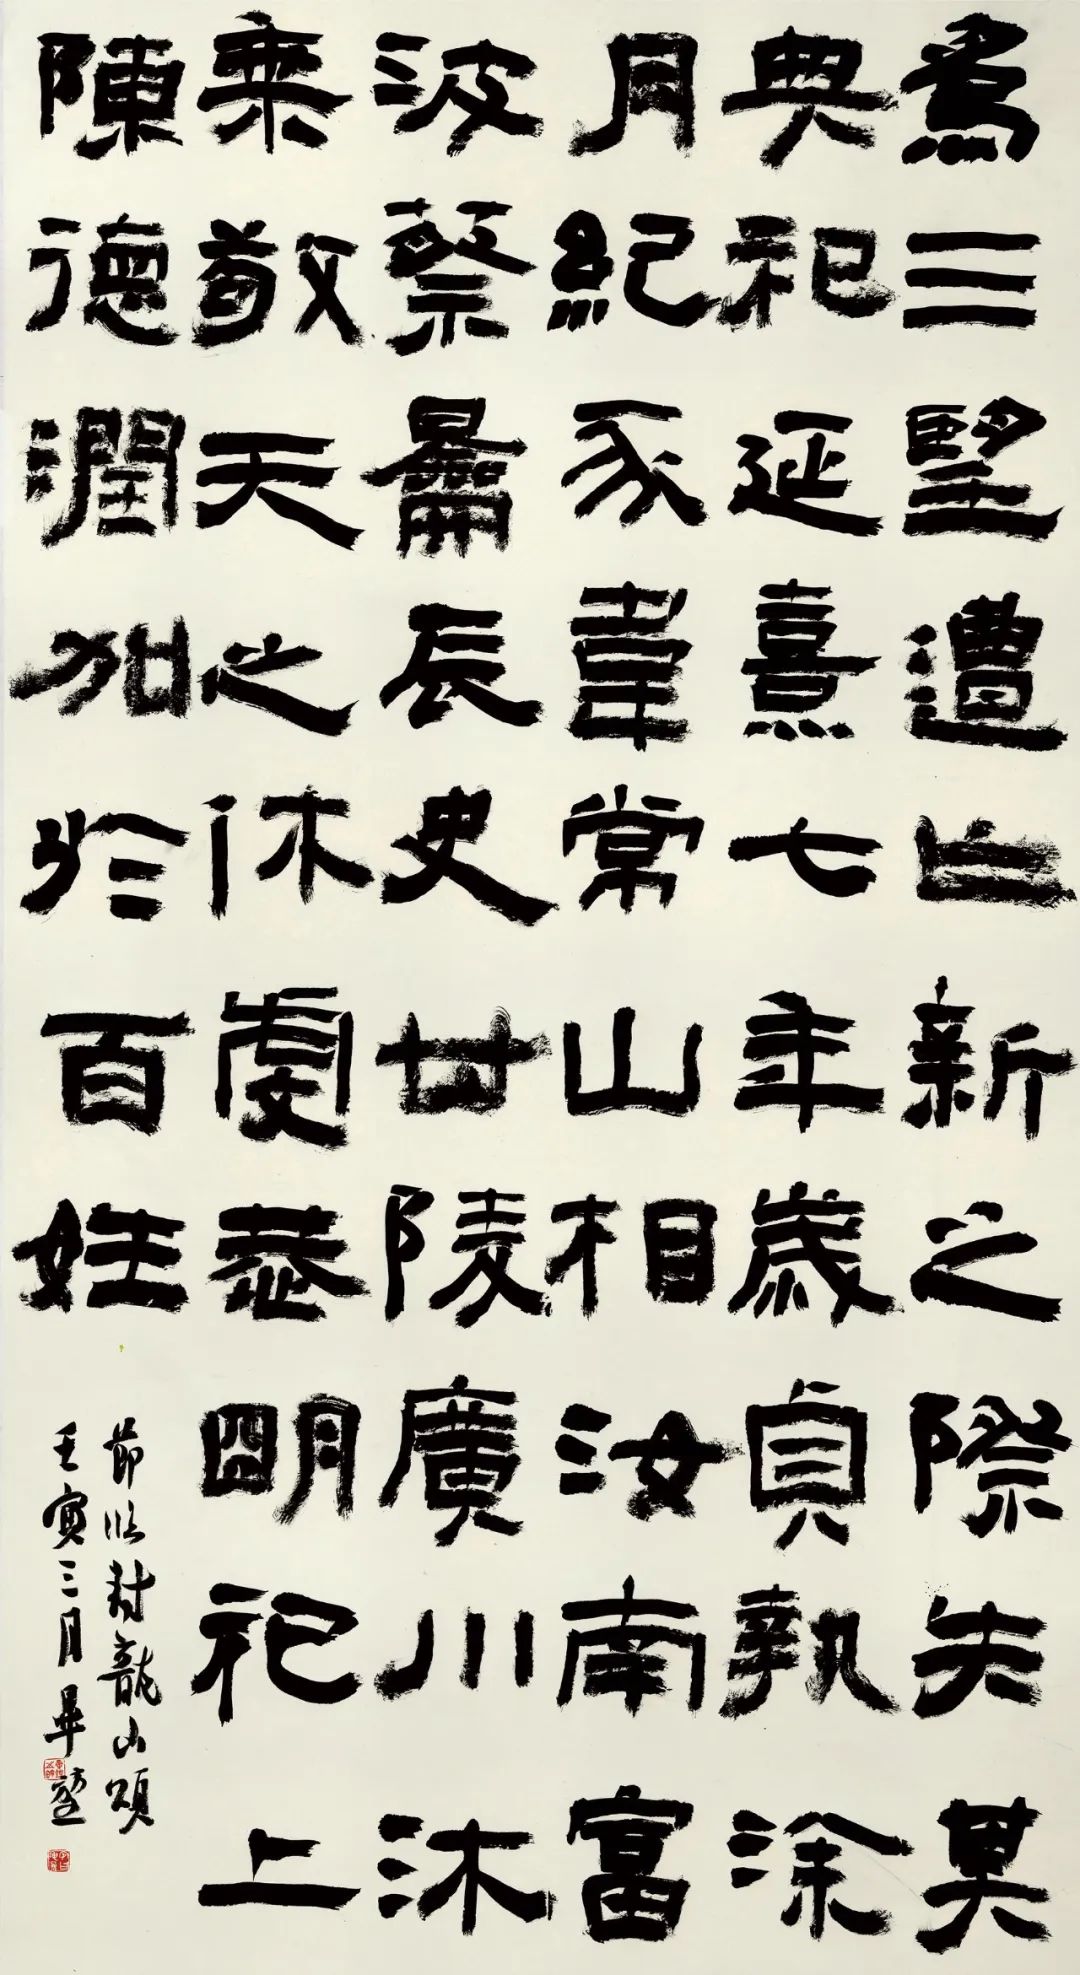 為三望遭亡新之際失其
典祀延熹七年歲貞執涂
月紀豕韋常山相汝南富
波蔡䵻長史甘陵廣川沐
乘敬天之休虔恭明祀上
陳德潤加於百姓
節臨封龍山頌
壬寅三月畢